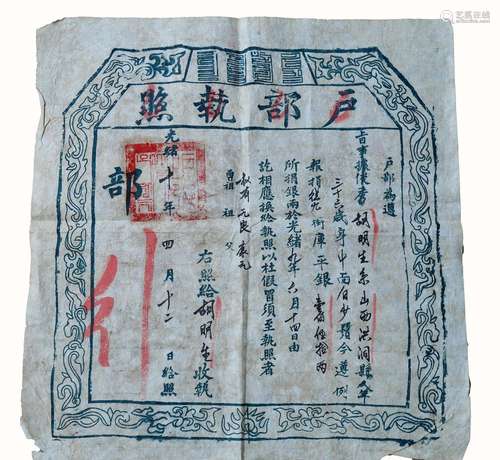 戶部執照
戶部為遵
旨事據俊秀胡明生系山西洪洞縣人年
三十三歲身中面白少鬚今遵例
報捐從九銜庫平銀壹佰拾兩
所捐銀兩於光緒九年六月十四日由
訖相應換給執照以杜假冒須至執照者
曾祖 祖 父
右照給胡明生收執
光緒十年四月十二日給照
部